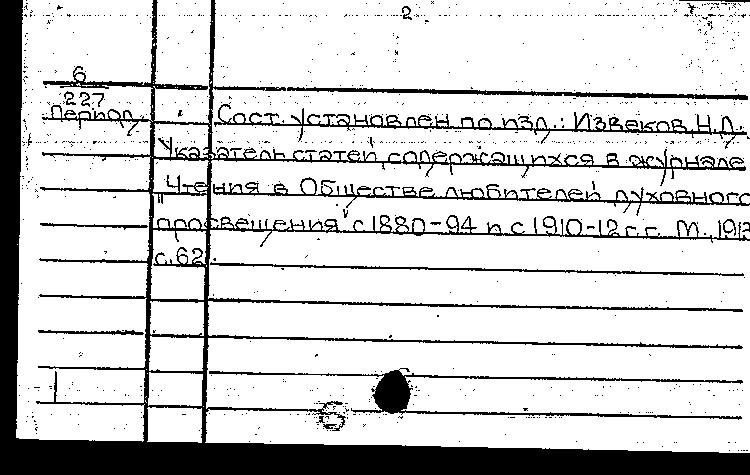 2
6
227
Период.
Сост. установлен по изд.: Извеков, Н.Д.
Указатель статей, содержащихся в журнале
"Чтения в Обществе любителей духовного
просвещения" с 1880-94 и с 1910-12 г.г. М., 1913
с. 62.